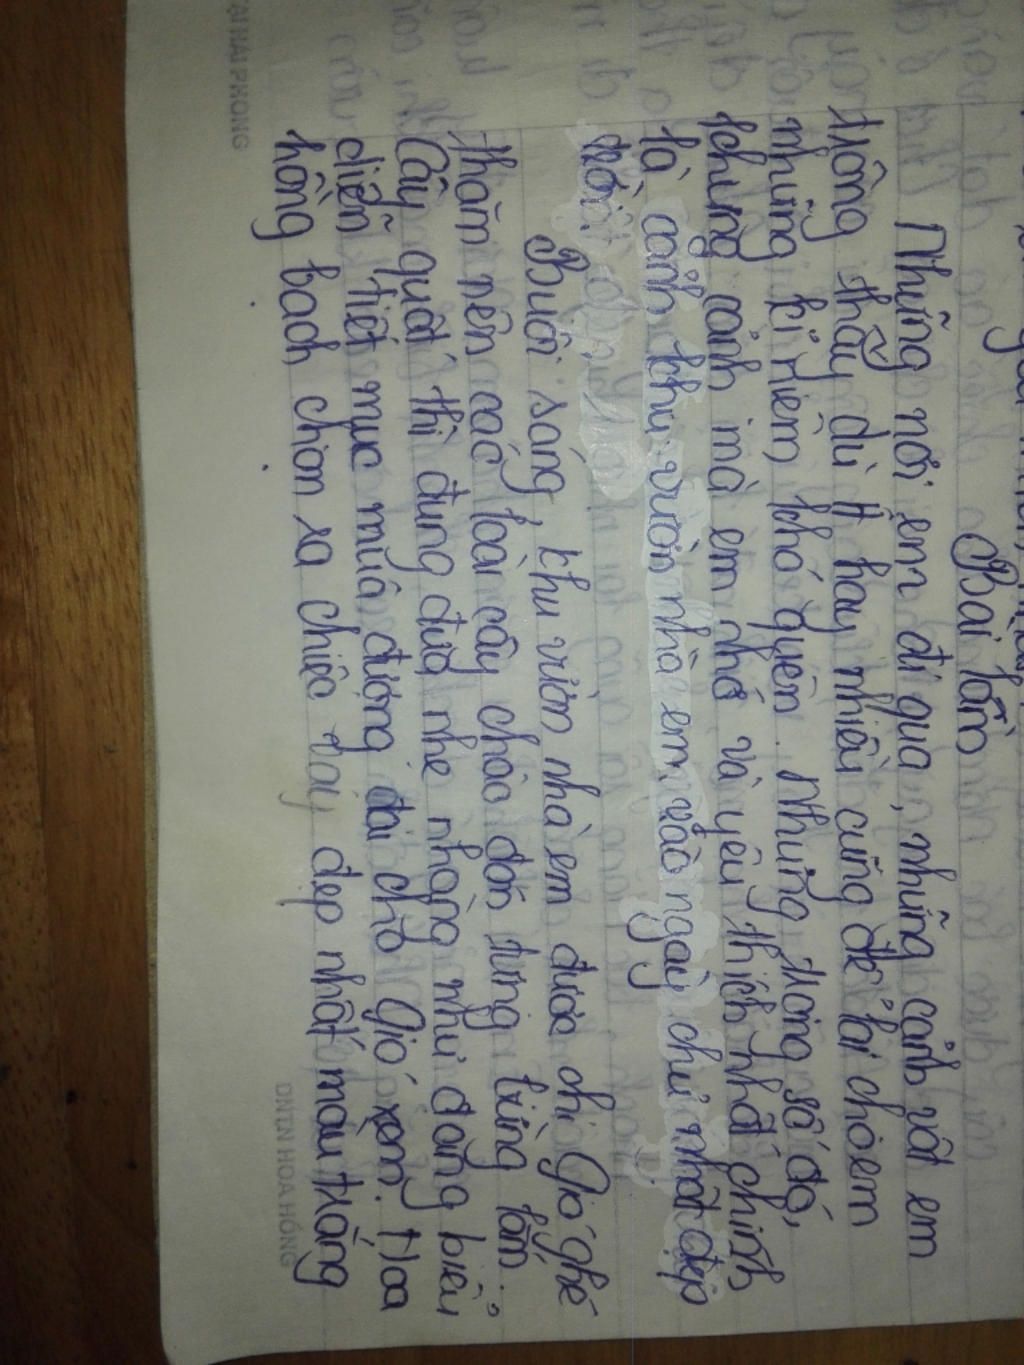 Bài làm
Những nơi em đi qua, những cảnh vật em
trông thấy dù ít hay nhiều cũng để lại cho em
những kỉ niệm khó quên. Nhưng trong số đó,
khung cảnh mà em nhớ và yêu thích nhất chính
là cảnh khu vườn nhà em vào ngày chủ nhật đẹp
trời.
Buổi sáng, khu vườn nhà em được chị Gió ghé
thăm nên các loài cây chào đón tưng bừng lắm.
Cây quất thì đung đưa nhẹ nhàng như đang biểu
diễn tiết mục múa đương đại cho Gió xem. Hoa
hồng bạch chọn ra chiếc váy đẹp nhất màu trắng
ĐẠI HẢI PHONG
DNTN HOA HỒNG